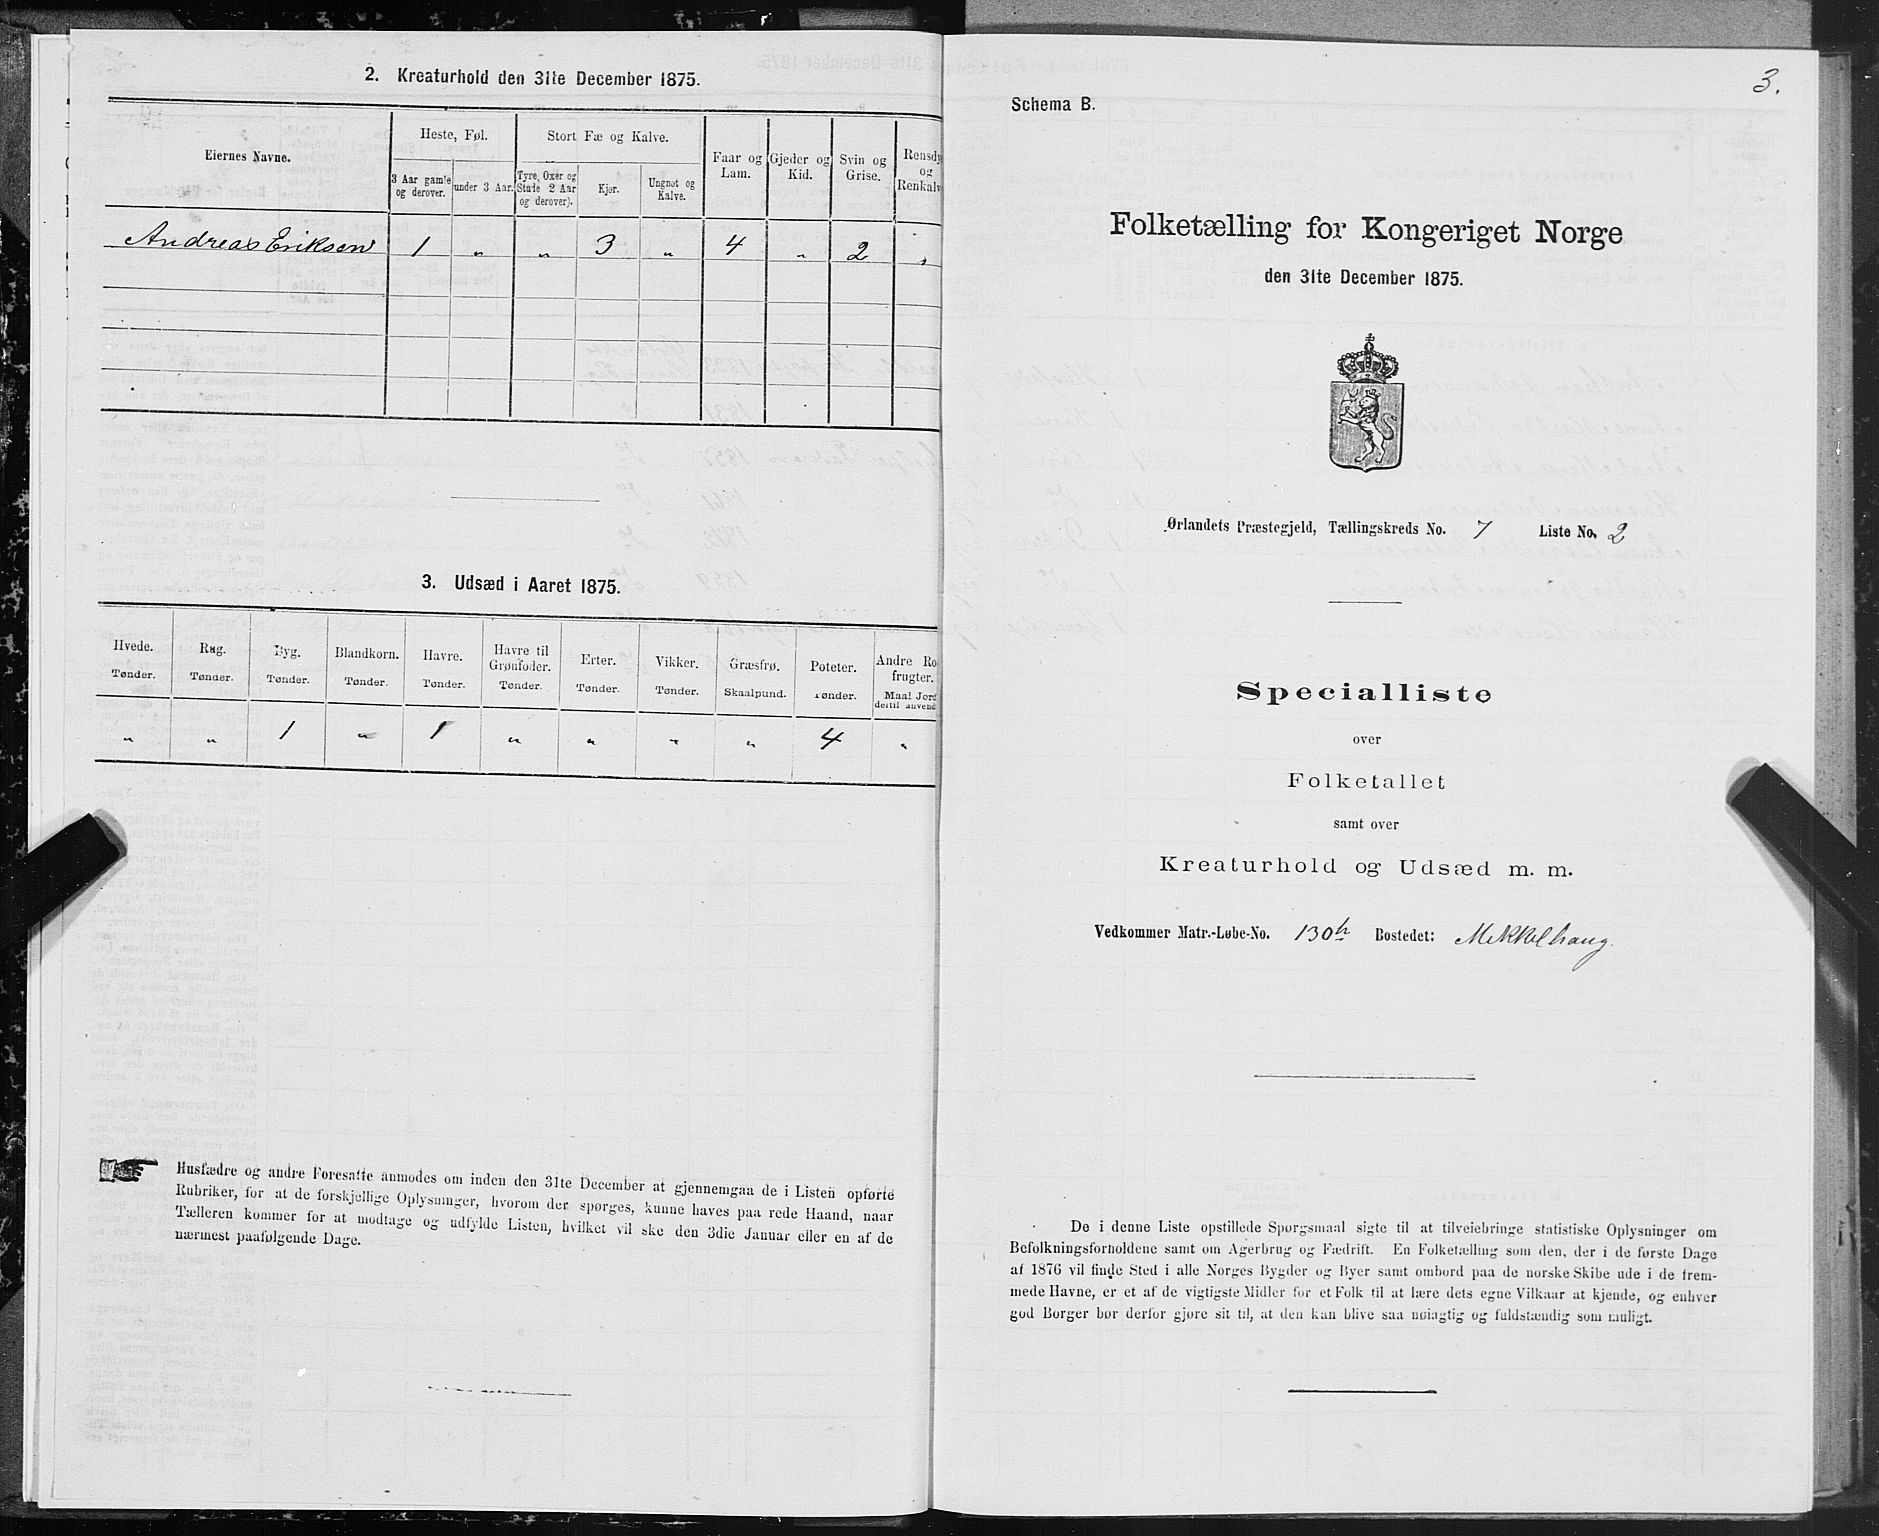 2. Kreaturhold den 31te December 1875.
Eiernes Navne.
Heste, Føl.
Stort Fæ og Kalve.
Faar og Lam.
Gjeder og Kid.
Svin og Grise.
Rensdy
og
Renkalv
3 Aar gamle og derover.
under 3 Aar.
Tyre, Oxer og Stude 2 Aar og derover).
Kjør.
Ungnøt og Kalve.
Andreas Eriksen 1 „ „ 3 „ 4 „ 2 „
3. Udsæd i Aaret 1875.
Hvede. Rug. Byg. Blandkorn. Havre. Havre til Grønfoder. Erter. Vikker. Græsfrø. Poteter. Andre Ro
frugter.
Tønder. Tønder. Tønder. Tønder. Tønder. Tønder. Tønder. Tønder. Skaalpund. Tønder. Maal Jord
dertil anvend
„ „ 1 „ 1 „ „ „ „ 4 „
Husfædre og andre Foresatte anmodes om inden den 31te December at gjennemgaa de i Listen opførte
Rubriker, for at de forskjellige Oplysninger, hvorom der spørges, kunne haves paa rede Haand, naar
Tælleren kommer for at modtage og udfylde Listen, hvilket vil ske den 3die Januar eller en af de
nærmest paafølgende Dage.
3.
Schema B.
Folketælling for Kongeriget Norge
den 31te December 1875.
Ørlandets Præstegjeld, Tællingskreds No. 7 Liste No. 2
Specialliste
over
Folketallet
samt over
Kreaturhold og Udsæd m. m.
Vedkommer Matr.-Løbe-No. 130h Bostedet: Mekkelhaug.
De i denne Liste opstillede Spørgsmaal sigte til at tilveiebringe statistiske Oplysninger om
Befolkningsforholdene samt om Agerbrug og Fædrift. En Folketælling som den, der i de første Dage
af 1876 vil finde Sted i alle Norges Bygder og Byer samt ombord paa de norske Skibe ude i de frem-
mede Havne, er et af de vigtigste Midler for et Folk til at lære dets egne Vilkaar at kjende, og enhver
god Borger bør derfor gjøre sit til, at den kan blive saa nøiagtig og fuldstændig som muligt.